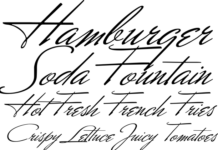 Hamburger
Soda Fountain
Hot Fresh French Fries
Crispy Lettuce Juicy Tomatoes